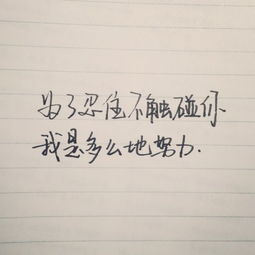 为了忍住不触碰你
我是多么地努力.